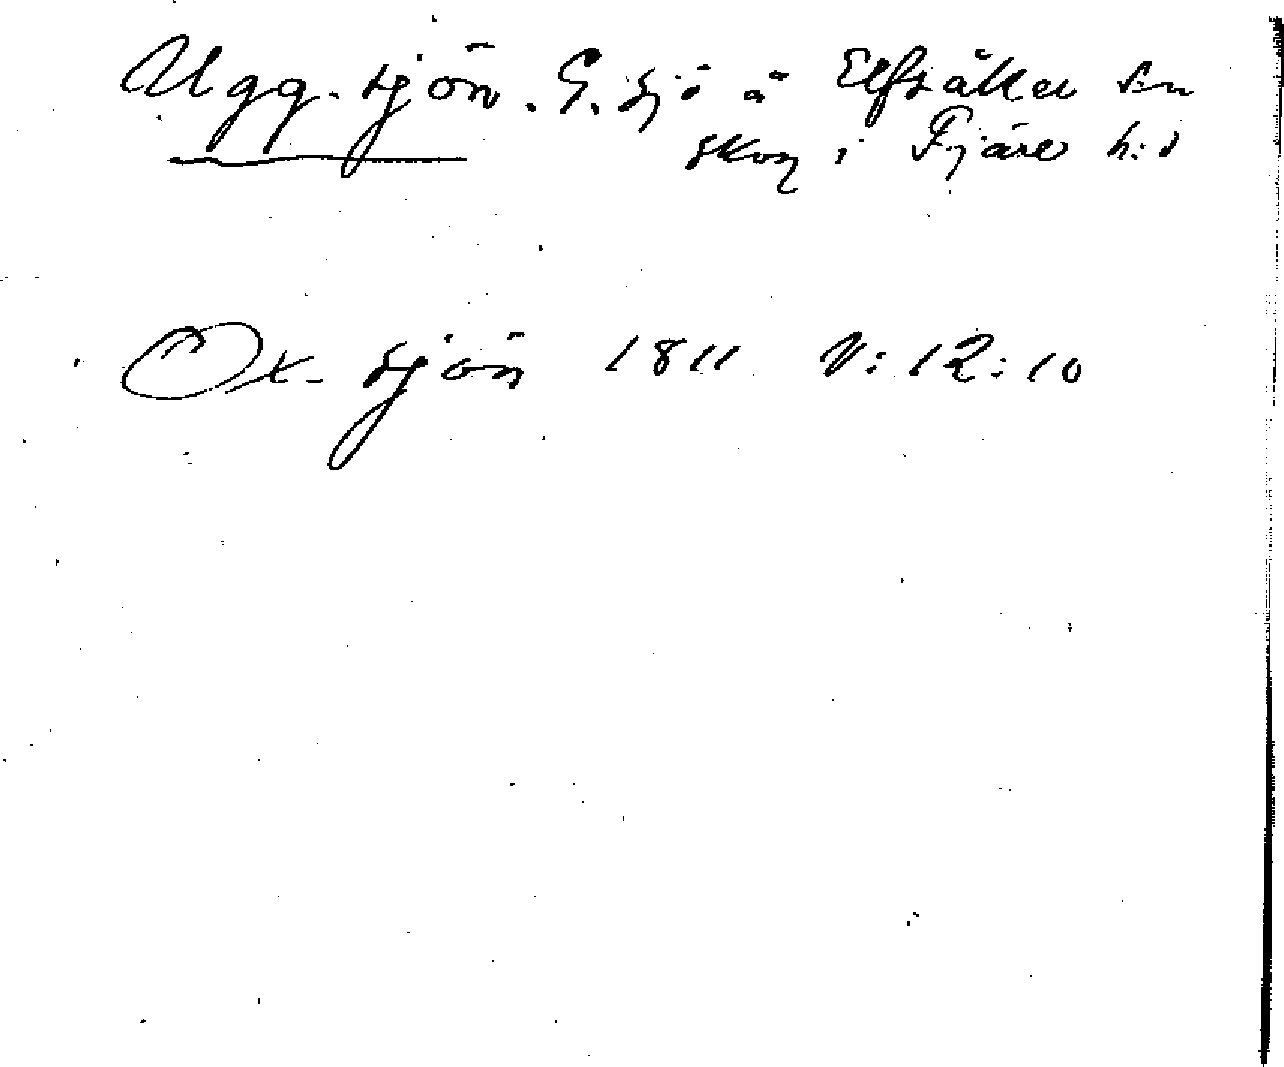 Ugg-sjön. G. sjö å Elfsåker sn
skog i Fjäre h:d
Ox-sjön 1811 V:12:10